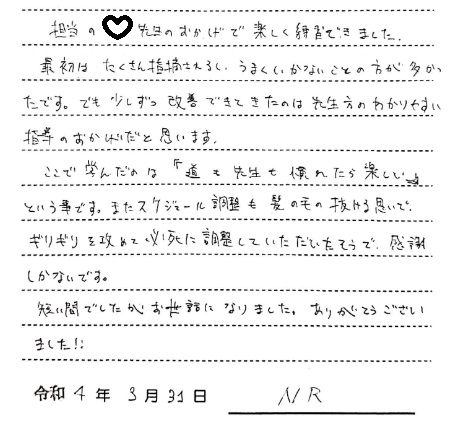 担当の♡先生のおかげで楽しく練習できました。
最初はたくさん指摘されるし、うまくいかないことの方が多かっ
たです。でも少しずつ改善できてきたのは先生方のわかりやすい
指導のおかげだと思います。
ここで学んだのは『道も先生も慣れたら楽しい』
という事です。またスケジュール調整も髪の毛の抜ける思いで、
ギリギリを攻めて必死に調整していただいたそうで、感謝
しかないです。
短い間でしたがお世話になりました。ありがとうござい
ました!!
令和 4 年 3 月 31 日 NR